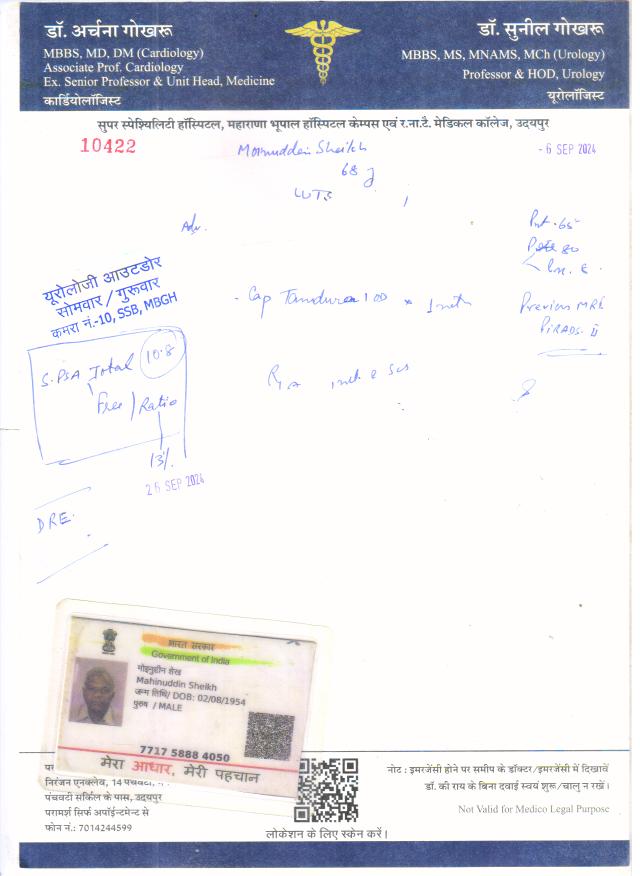 डॉ. अर्चना गोखरू
MBBS, MD, DM (Cardiology)
Associate Prof. Cardiology
Ex. Senior Professor & Unit Head, Medicine
कार्डियोलॉजिस्ट
डॉ. सुनील गोखरू
MBBS, MS, MNAMS, MCh (Urology)
Professor & HOD, Urology
यूरोलॉजिस्ट
सुपर स्पेश्यिलिटी हॉस्पिटल, महाराणा भूपाल हॉस्पिटल केम्पस एवं र.ना.टै. मेडिकल कॉलेज, उदयपुर
10422
Sheikh
- 6 SEP 2024
68 y
LUTS
Adv.
यूरोलोजी आउटडोर
सोमवार / गुरूवार
कमरा नं.-10, SSB, MBGH
- Cap
Previous MRI
PIRADS. II
S.PSA Total 10.8
Free / Ratio
13%
26 SEP 2024
DRE.
भारत सरकार
Government of India
मोइनुद्दीन शेख
Mahinuddin Sheikh
जन्म तिथि/ DOB: 02/08/1954
पुरुष / MALE
7717 5888 4050
मेरा आधार, मेरी पहचान
निरंजन एनक्लेव, 14 पंचवटी,
पंचवटी सर्किल के पास, उदयपुर
परामर्श सिर्फ अपॉईन्टमेन्ट से
फोन नं.: 7014244599
लोकेशन के लिए स्केन करें।
नोट : इमरजेंसी होने पर समीप के डॉक्टर/इमरजेंसी में दिखावें
डॉ. की राय के बिना दवाई स्वयं शुरू/चालु न रखें।
Not Valid for Medico Legal Purpose